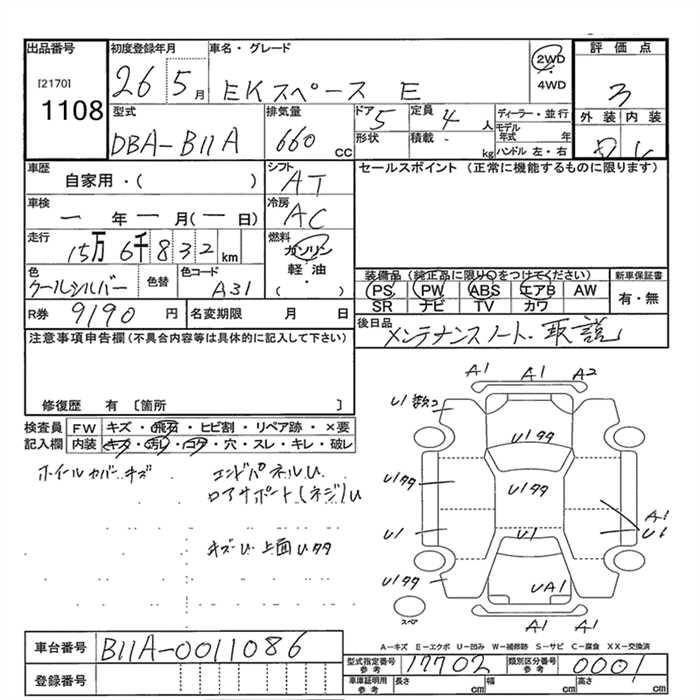 出品番号 初度登録年月 車名・グレード 評価点
[2170]
1108
26 5月 EKスペース E
2WD
4WD
3
型式 排気量 ドア 5 定員 4人 ディーラー・並行 外装 内装
DBA-B11A 660 cc 形状 積載 - kg モデル年式 年
ハンドル 左・右
車歴 シフト セールスポイント (正常に機能するものに限ります)
自家用・( ) AT
車検 冷房
一 年 一 月(一 日) AC
走行 燃料
15万6千832 km ガソリン
軽・油
( )
色 色替 色コード 装備品(純正品に限り○をつけてください) 新車保証書
クールシルバー A31 PS PW ABS エアB AW 有・無
SR ナビ TV カワ
R券 9190 円 名変期限 月 日 後日品
メンテナンスノート・取説
注意事項申告欄(不具合内容等は具体的に記入して下さい)
修復歴 有 〔箇所 〕
検査員 FW キズ・飛石・ヒビ割・リペア跡・×要
記入欄 内装 キズ・汚レ・コゲ・穴・スレ・キレ・破レ
ホイールカバーキズ エンドパネルU
ロアサポート(ネジ)U
A1 A1 A2
U1数コ
U1タタ
U1タタ U1タタ
U1 U1 A1
U1タタ UA1
スペア A1 A1
A-キズ E-エクボ U-凹み W-補修跡 S-サビ C-腐食 XX-交換済
車台番号 B11A-0011086
登録番号
型式指定番号 参考 17702 類別区分番号 参考 0001
車庫証明用 参考 長さ cm 幅 cm 高さ cm